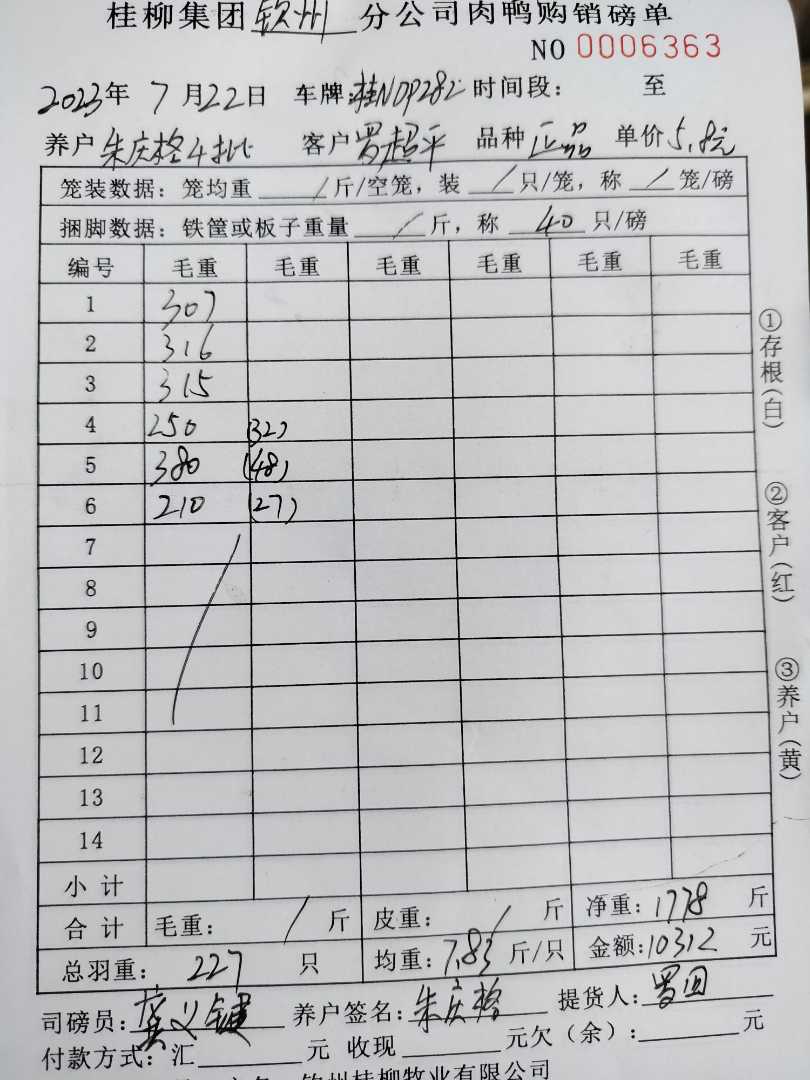 桂柳集团钦州分公司肉鸭购销磅单
NO 0006363
2023年7月22日 车牌:桂NDP282 时间段: 至
养户朱庆格4批 客户罗超平 品种正品 单价5.8元
笼装数据：笼均重 / 斤/空笼，装 / 只/笼，称 / 笼/磅
捆脚数据：铁筐或板子重量 / 斤，称 40 只/磅
编号 毛重 毛重 毛重 毛重 毛重 毛重
1 307
2 316
3 315
4 250 (32)
5 380 (48)
6 210 (27)
7
8
9
10
11
12
13
14
小计
合计 毛重： / 斤 皮重： / 斤 净重：1778 斤
总羽重： 227 只 均重：7.83 斤/只 金额:10312 元
司磅员: 养户签名:朱庆格 提货人:
付款方式：汇 元 收现 元欠（余）: 元
钦州桂柳牧业有限公司
①存根(白)
②客户(红)
③养户(黄)